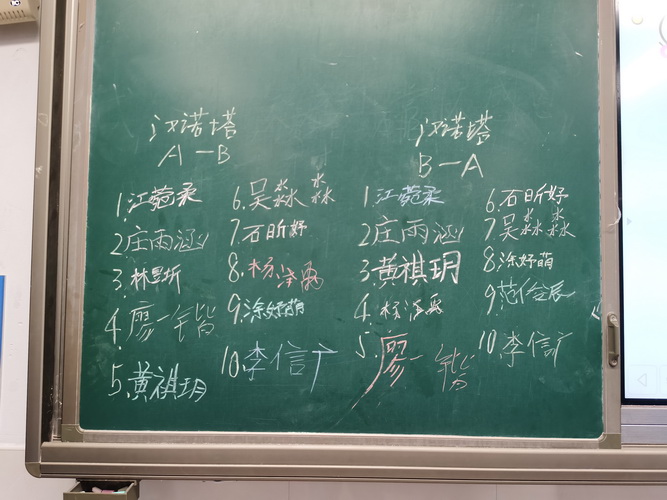 汉诺塔
A—B
1.江菀柔
2庄雨涵
3.林昱圻
4.廖一锴
5.黄祺玥
6.吴淼淼
7.石昕妤
8.
9.涂妤萌
10.李信广
汉诺塔
B—A
1.江菀柔
2庄雨涵
3黄祺玥
4.
5.廖一锴
6.石昕妤
7吴淼淼
8涂妤萌
9范
10.李信广